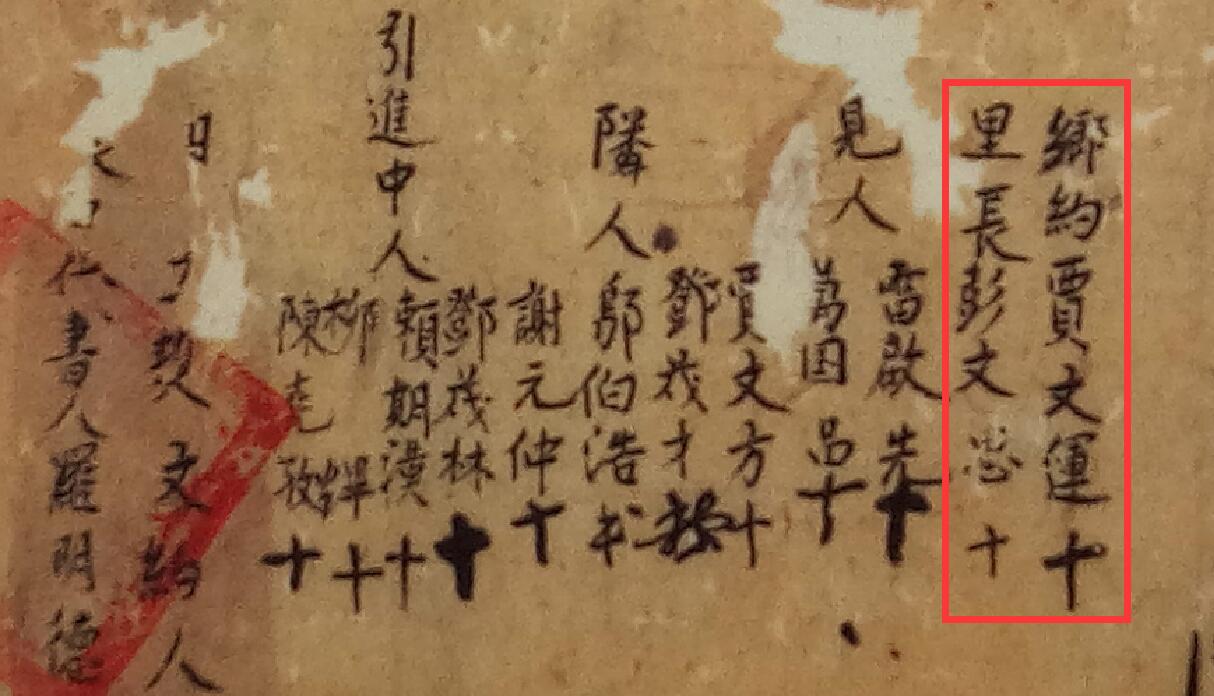 鄉約賈文運十
里長彭文忠十
見人
雷啟先十
萬国呂十
隣人
賈文方十
鄧茂才
鄔伯浩
謝元仲十
引進中人
鄧茂林十
賴朝潢十
柳 十
陳 十
日 文約人
代書人羅明德